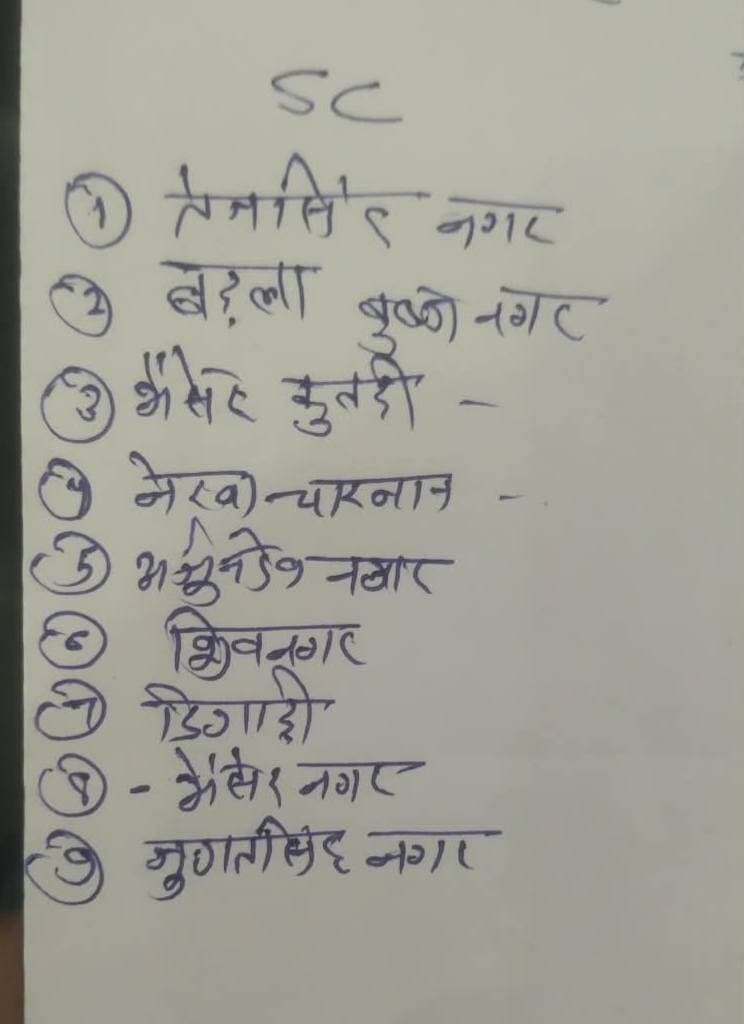 SC
① तेजसिंह नगर
② बड़ला कृष्ण नगर
③ भैंसेर कुतड़ी -
④ नेरवा चारनान -
⑤ नगर
⑥ शिवनगर
⑦ डिगाड़ी
⑧ - भैंसेर नगर
⑨ जुगतसिंह नगर